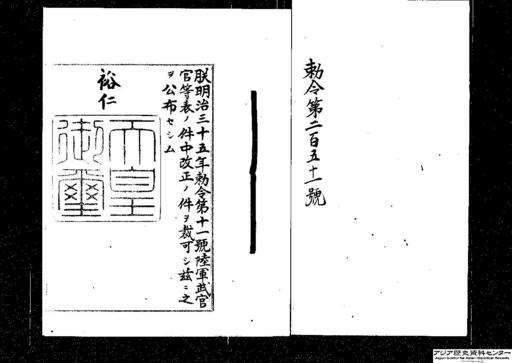 勅令第二百五十一號
朕明治三十五年勅令第十一號陸軍武官
官等表ノ件中改正ノ件ヲ裁可シ茲ニ之
ヲ公布セシム
裕仁
天皇
御璽
アジア歴史資料センター
Japan Center for Asian Historical Records